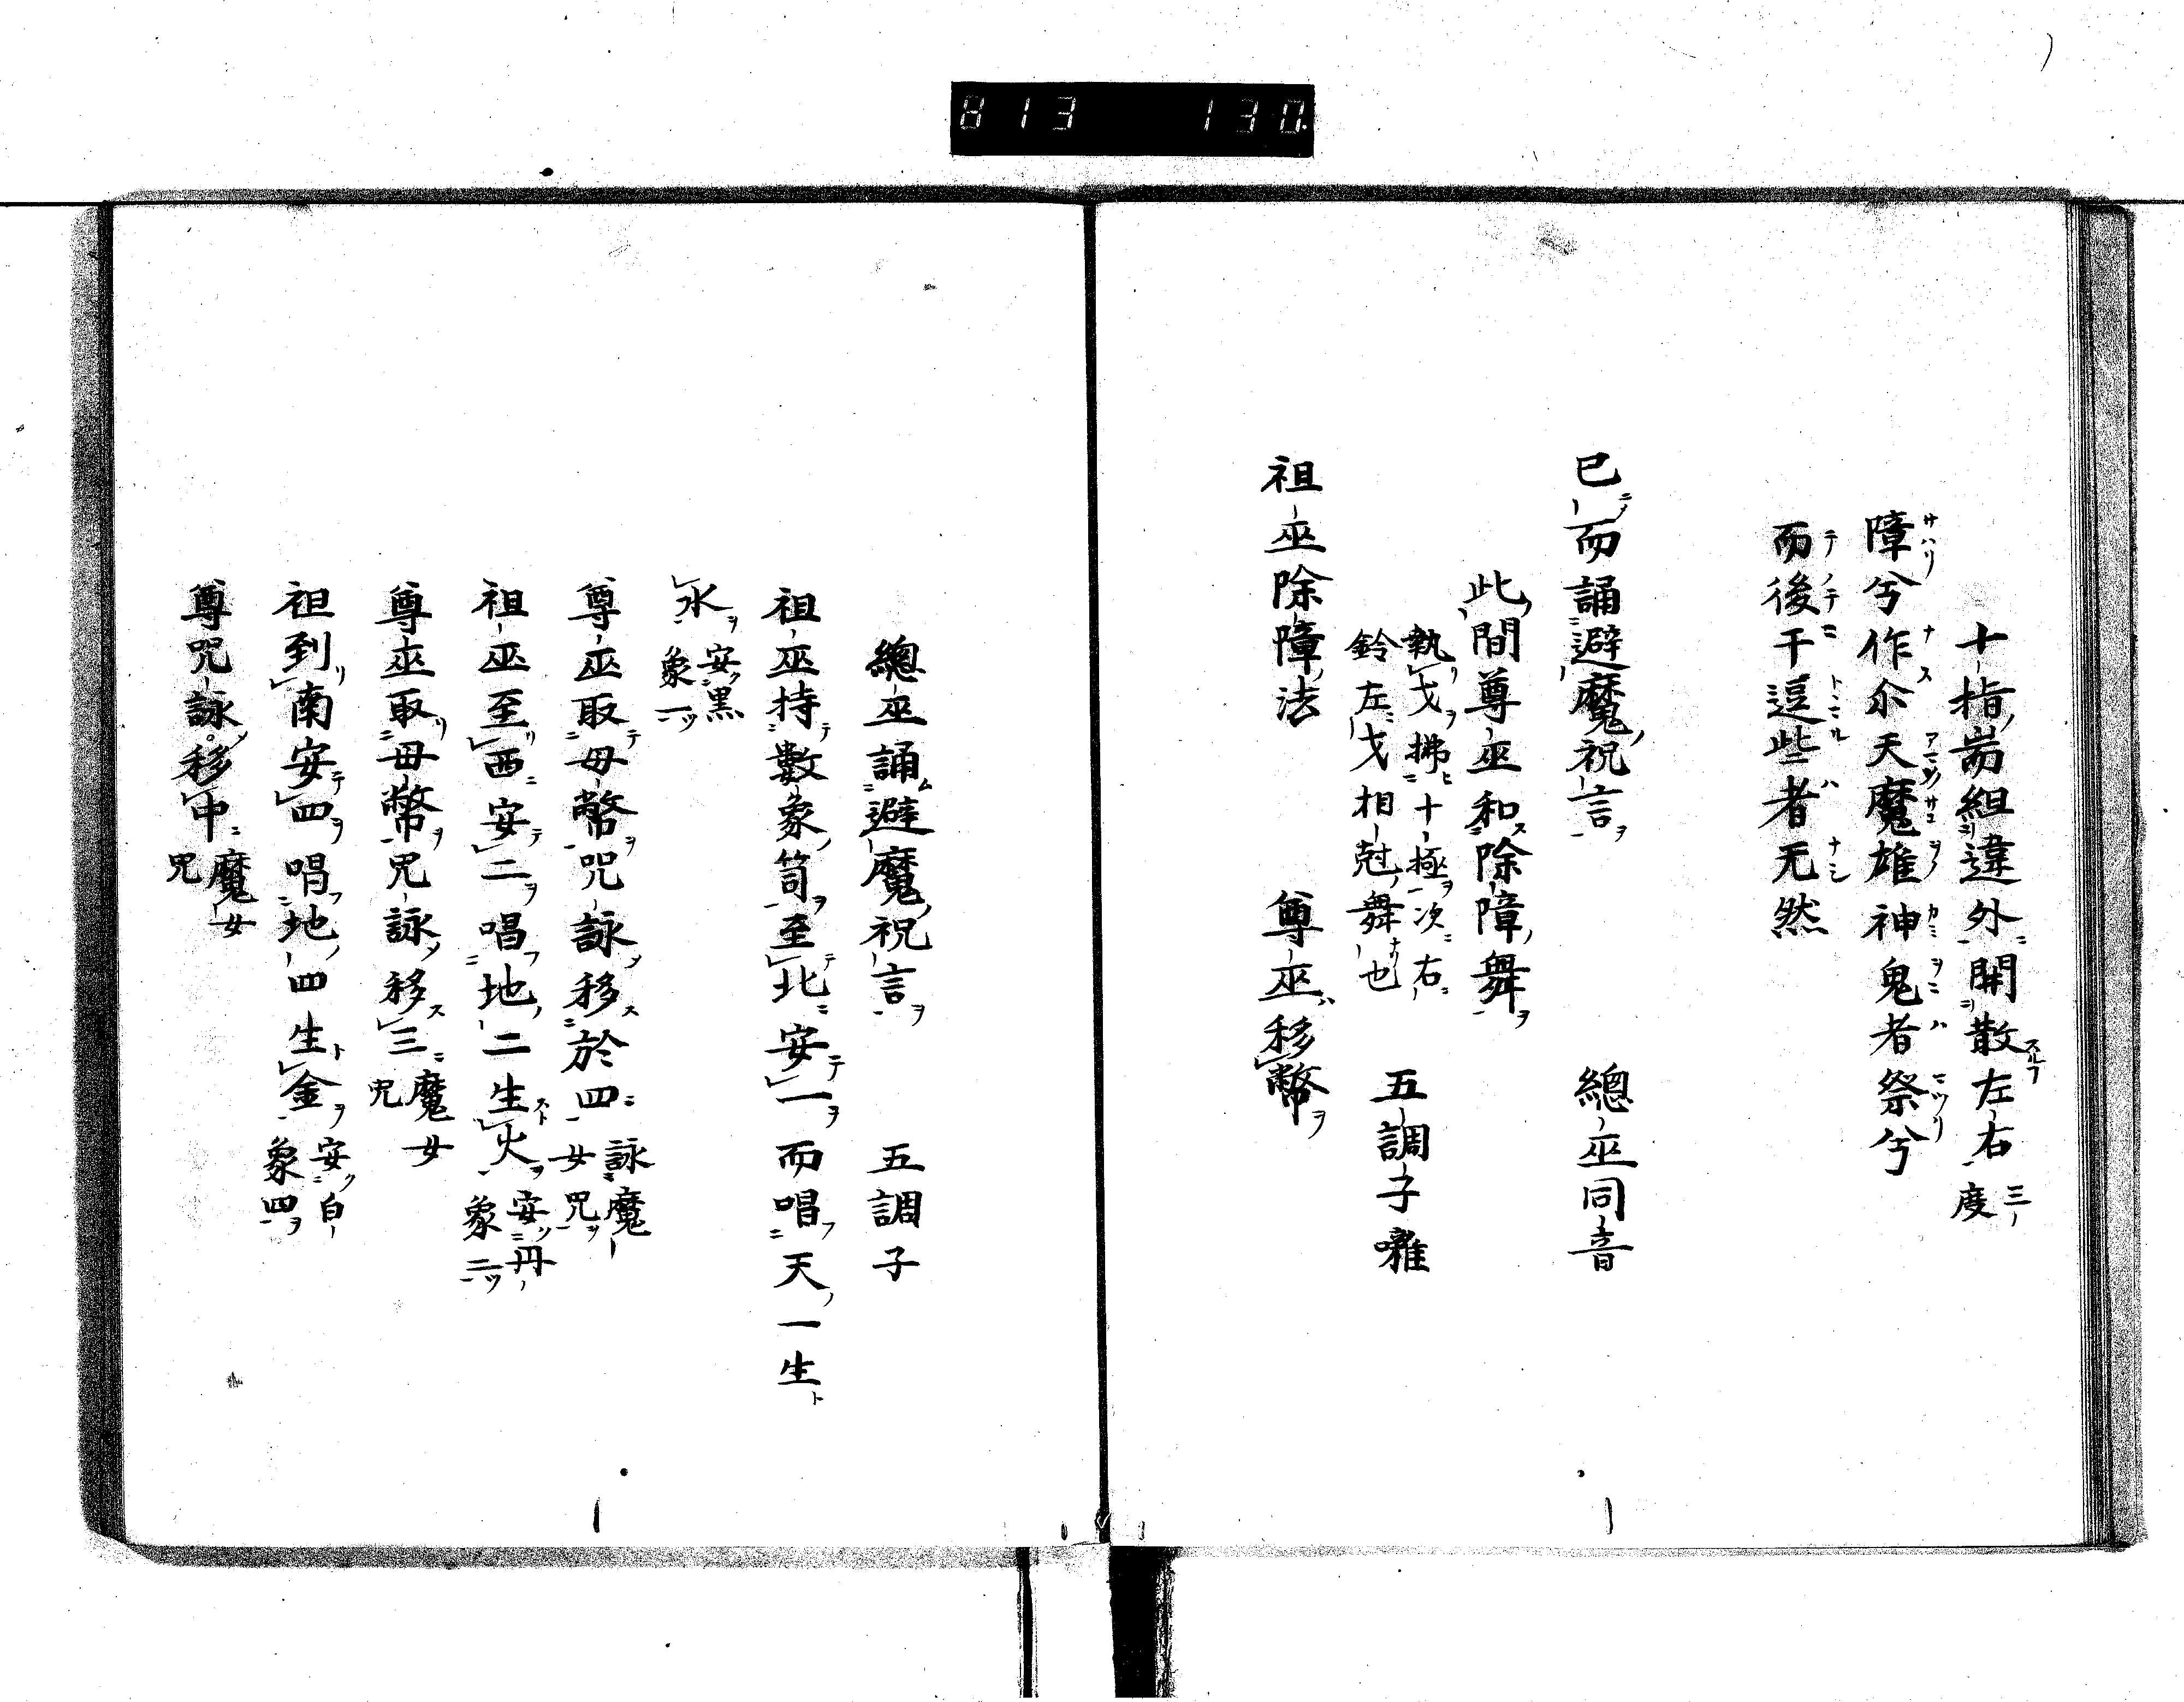 813 130
十指耑組違外開散左右三度
障兮作尒天魔雄神鬼者祭兮
而後干逗些者无然
已而誦避魔祝言 總巫同音
此間尊巫和除障舞
執戈拂十極次右
鈴左戈相尅舞也 五調子囃
祖巫除障法 尊巫移幣
總巫誦避魔祝言 五調子
祖巫持數象筒至北安一而唱天一生
水安黒象一
尊巫取母幣咒詠移於四詠魔女咒
祖巫至西安二唱地二生火安丹象二
尊巫取母幣咒詠移三魔女咒
祖到南安四唱地四生金安白象四
尊咒詠移中魔女咒